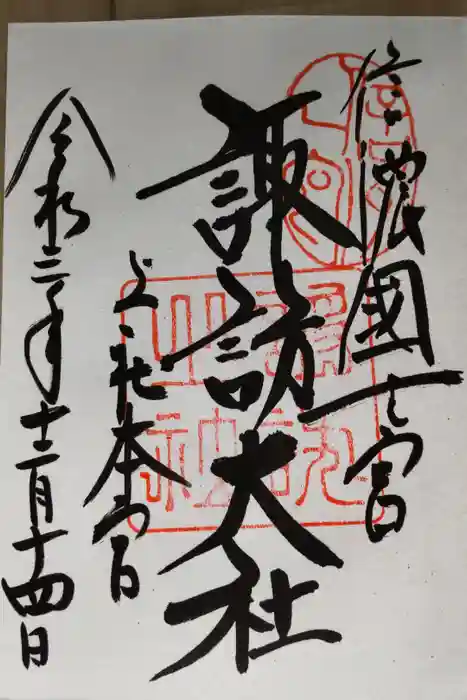 信濃國一之宮
諏訪大社
上社本宮
令和三年十二月十四日